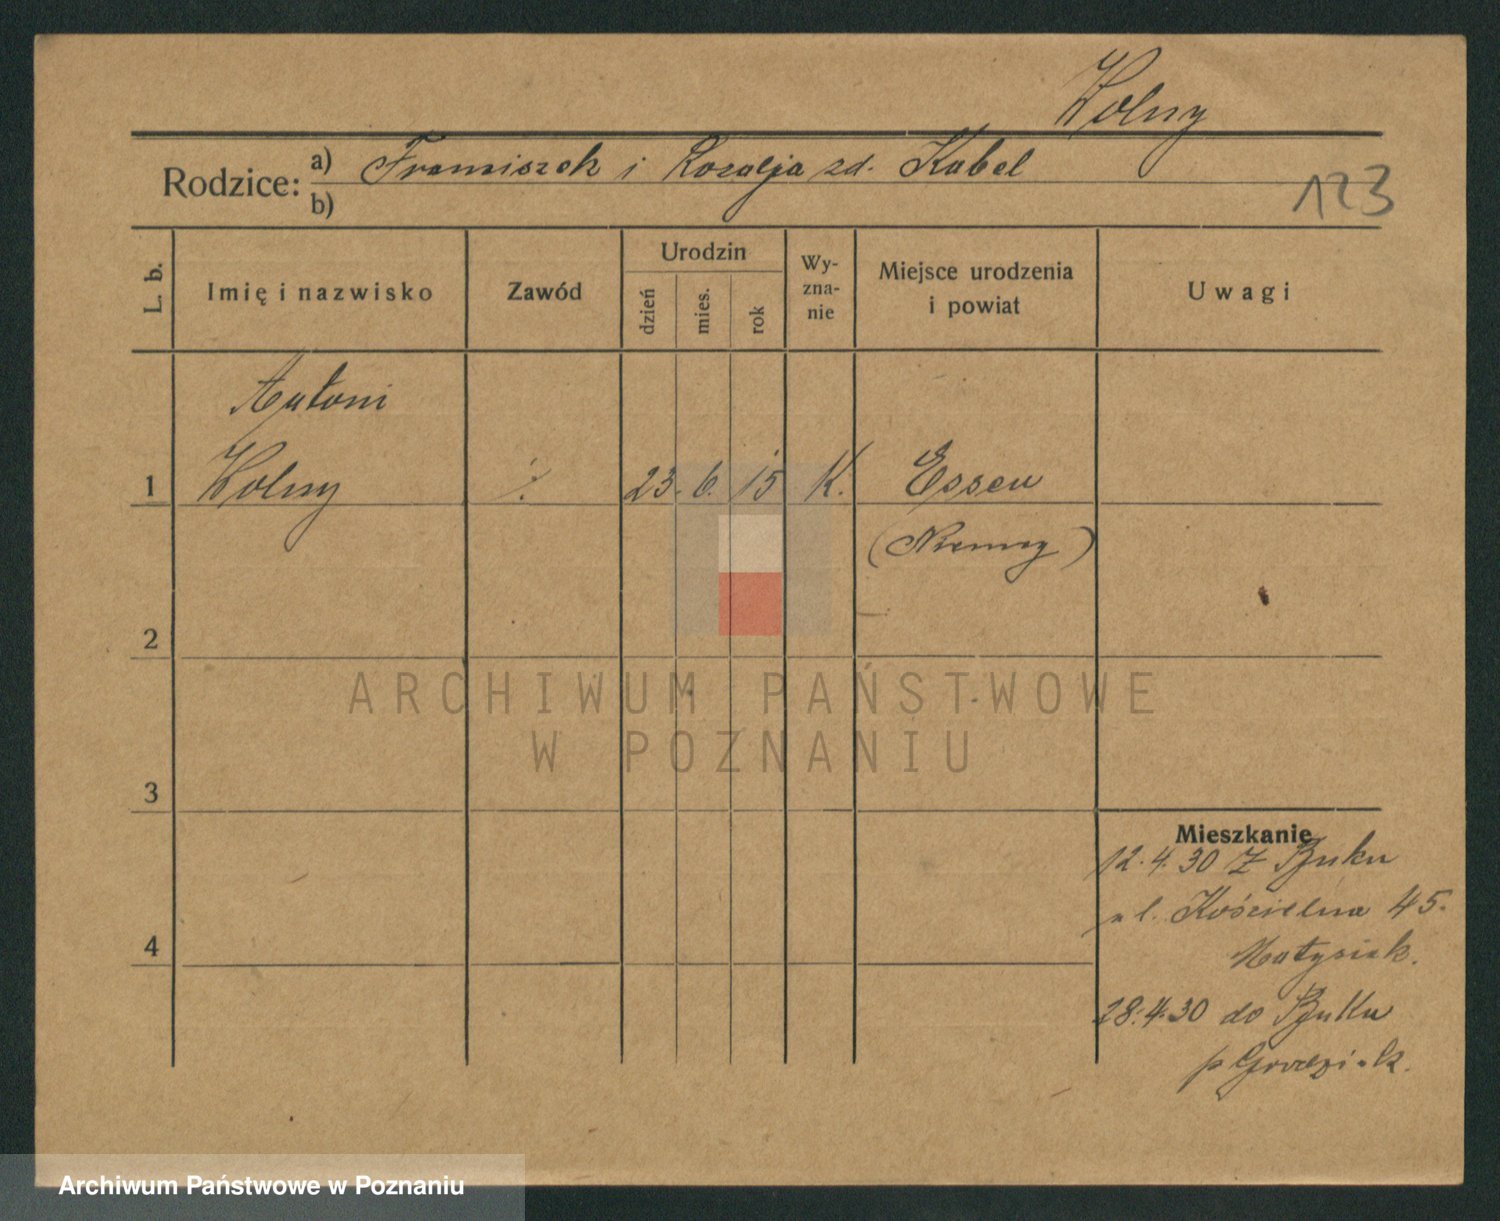 Wolny
Rodzice: a) Franciszek i Rozalja zd. Kabel
b)
123
L. b.
Imię i nazwisko
Zawód
Urodzin
dzień
mies.
rok
Wy-
zna-
nie
Miejsce urodzenia
i powiat
Uwagi
Antoni
1 Wolny ·/. 23. 6. 15 K. Essen
(Niemcy)
2
3
4
ARCHIWUM PAŃSTWOWE
W POZNANIU
Mieszkanie
12.4.30 z Buku
ul. Kościelna 45.
Matysiak.
28.4.30 do Buku
p
Archiwum Państwowe w Poznaniu